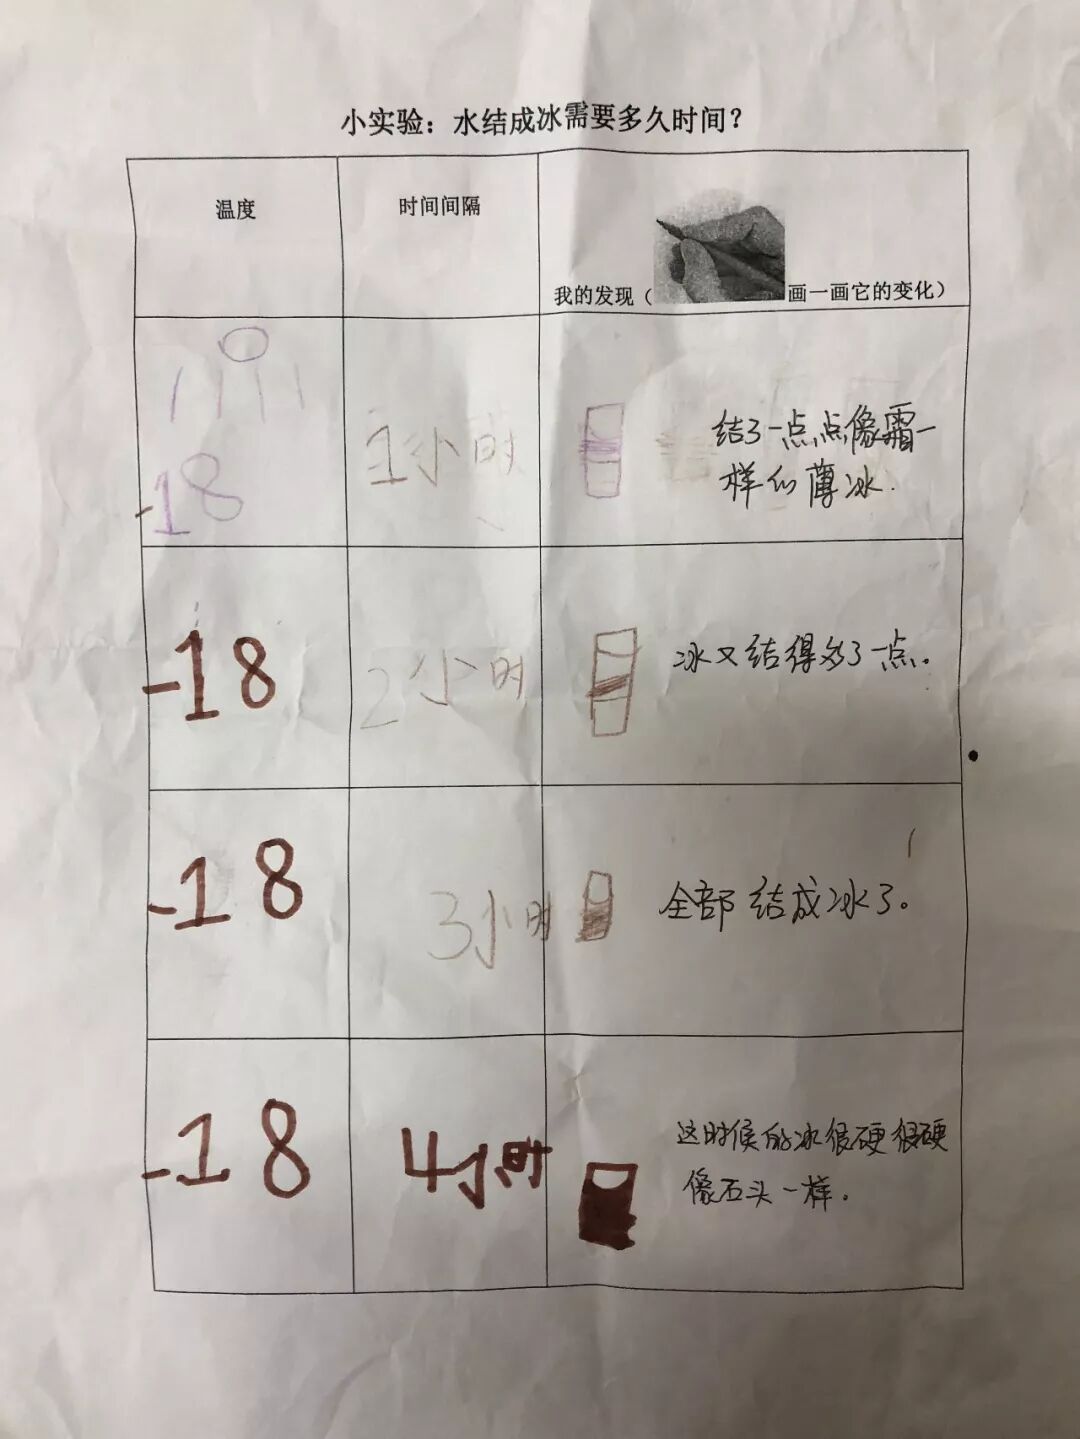 小实验：水结成冰需要多久时间？
温度
时间间隔
我的发现（画一画它的变化）
-18
1小时
结了一点点像霜一
样的薄冰.
-18
2小时
冰又结得多了一点.
-18
3小时
全部结成冰了。
-18
4小时
这时候的冰很硬很硬
像石头一样.